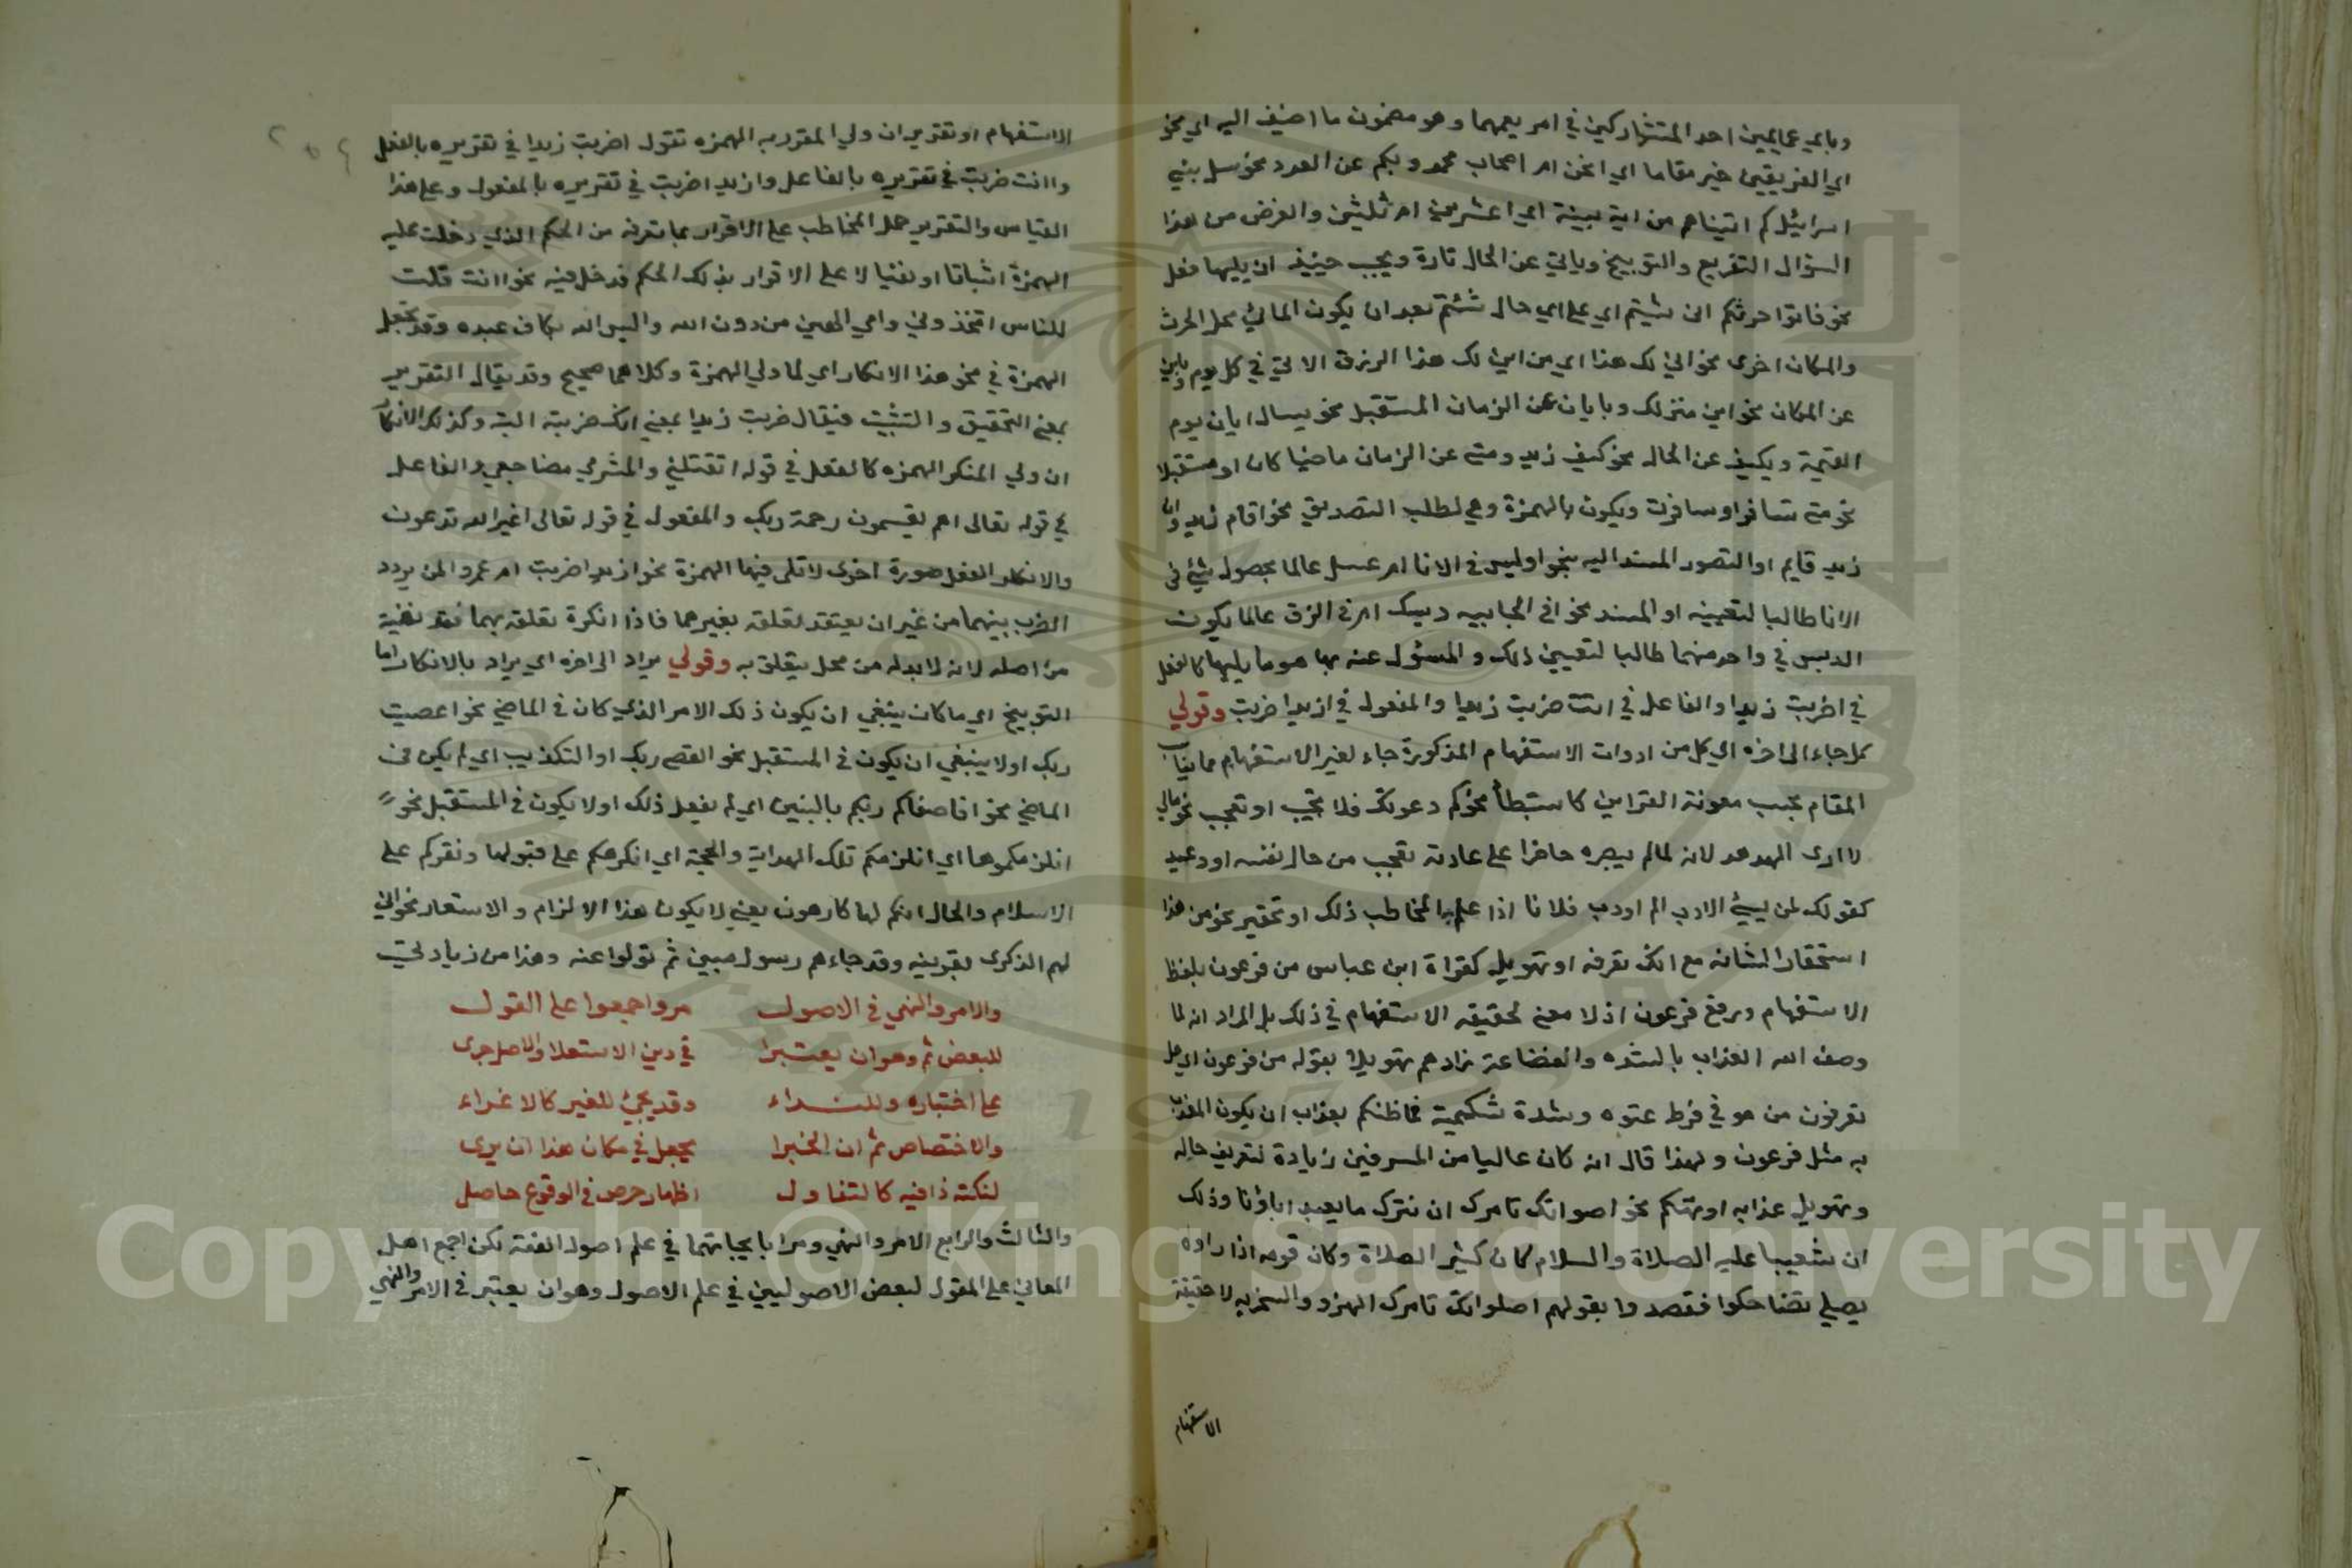 وباي عما يميز احد المتشاركين في امر يعمهما وهو مضمون ما اضيف اليه اي نحو
اي الفريقين خير مقاما اي انحن ام اصحاب محمد وبكم عن العدد نحو سل بني
اسرائيل كم اتيناهم من اية بينة اي اعشرين ام ثلثين والغرض من هذا
السؤال التقريع والتوبيخ وياتي عن الحال تارة ويجب حينيذ ان يليها فعل
نحو فاتوا حرثكم انى شيتم اي على اي حال شئتم بعد ان يكون الماتي محل الحرث
والمكان اخرى نحو انى لك هذا اي من اين لك هذا الرزق الاتي في كل يوم وباين
عن المكان نحو اين منزلك وبايان عن الزمان المستقبل نحو يسال ايان يوم
القيمة وبكيف عن الحال نحو كيف زيد ومتى عن الزمان ماضيا كان او مستقبلا
نحو متى تسافر او سافرت ويكون بالهمزة وهي لطلب التصديق نحو اقام زيد وا
زيد قايم او التصور المسند اليه بنحو ادبس في الانا ام عسل عالما بحصول شيئ في
الانا طالبا لتعيينه او المسند نحو افي الخابيه دبسك ام في الزق عالما بكون
الدبس في واحد منهما طالبا لتعيين ذلك والمسئول عنه بها هو ما يليها كالفعل
في اضربت زيدا والفاعل في اانت ضربت زيدا والمفعول في ازيدا ضربت وقولي
كل جاء الى اخره اي كل من ادوات الاستفهام المذكورة جاء لغير الاستفهام مما يناسب
المقام بحسب معونة القراين كاستبطأ نحو كم دعوتك فلا تجيب او تعجب نحو مالي
لا ارى الهدهد لانه لما لم يبصره حاضرا على عادته تعجب من حال نفسه او وعيد
كقولك لمن يسيئ الادب الم اودب فلانا اذا علم المخاطب ذلك او تحقير نحو من هذا
استحقارا لشانه مع انك تعرفه او تهويل كقراة ابن عباس من فرعون بلفظ
الاستفهام ورفع فرعون اذ لا معنى لحقيقه الاستفهام في ذلك بل المراد انه لما
وصف الله العذاب بالشده والفضاعة زادهم تهويلا بقوله من فرعون اي هل
تعرفون من هو في فرط عتوه وشدة شكيمته فما ظنكم بعذاب ان يكون المعذب
به مثل فرعون ولهذا قال انه كان عاليا من المسرفين زيادة لتعريف حاله
وتهويل عذابه او تهكم نحو اصواتك تامرك ان نترك ما يعبد اباؤنا وذلك
ان شعيبا عليه الصلاة والسلام كان كثير الصلاة وكان قومه اذا راوه
يصلي تضاحكوا فقصدوا بقولهم اصلواتك تامرك الهزو والسخريه لا حقيقة
الاستفهام
الاستفهام او تقرير ان ولي المقرر به الهمزه تقول اضربت زيدا في تقريره بالفعل
واانت ضربت في تقريره بالفاعل وازيد اضربت في تقريره بالمفعول وعلى هذا
القياس والتقرير حمل المخاطب على الاقرار بما تعرفه من الحكم الذي دخلت عليه
الهمزة اثباتا او نفيا لا على الاقرار بذلك الحكم فدخل فيه نحو اانت قلت
للناس اتخذوني وامي الهين من دون الله واليس الله بكاف عبده وقد تجعل
الهمزة في نحو هذا الانكار اي لما ولي الهمزة وكلاهما صحيح وقد يقال التقرير
بمعنى التحقيق والتثبيت فيقال ضربت زيدا بمعنى انك ضربته البتة وكذلك الانكار
ان ولي المنكر الهمزه كالفعل في قوله اتقتلني والمشرفي مضاجعي والفاعل
في قوله تعالى اهم يقسمون رحمة ربك والمفعول في قوله تعالى اغير الله تدعون
والانكار الفعل صورة اخرى لا تلى فيها الهمزة نحو ازيد اضربت ام عمرو المن يردد
الضرب بينهما من غير ان يعتقد تعلقه بغيرهما فاذا انكرة تعلقه بهما فقد نفيته
من اصله لانه لا بد له من محل يتعلق به وقولي يراد الى اخره اي يراد بالانكار اما
التوبيخ اي ما كان ينبغي ان يكون ذلك الامر الذي كان في الماضي نحو اعصيت
ربك او لا ينبغي ان يكون في المستقبل نحو اتعصى ربك او التكذيب اي لم يكن في
الماضي نحو افاصفاكم ربكم بالبنين اي لم يفعل ذلك او لا يكون في المستقبل نحو
انلزمكموها اي انلزمكم تلك الهداية والحجة اي انكرهكم على قبولها ونقركم على
الاسلام والحال انكم لها كارهون يعني لا يكون هذا الالزام والاستعار نحو انى
لهم الذكرى بقرينه وقد جاءهم رسول مبين ثم تولوا عنه وهذا من زيادتي
والامر والنهي في الاصول مر واجمعوا على القول
للبعض ثم وهو ان يعتبرا في دين الاستعلا والاصل جرى
على اختباره وللنداء وقد يجئ للغير كالاغراء
والاختصاص ثم ان الخبرا يجعل في مكان هذا ان يرى
لنكتة ذا فيه كالتفاول اظهار حرص في الوقوع حاصل
والثالث والرابع الامر والنهي ومرا بابحاثهما في علم اصول الفقه لكن اجمع اهل
المعاني على المقول لبعض الاصوليين في علم الاصول وهو ان يعتبر في الامر والنهي
Copyright © King Saud University